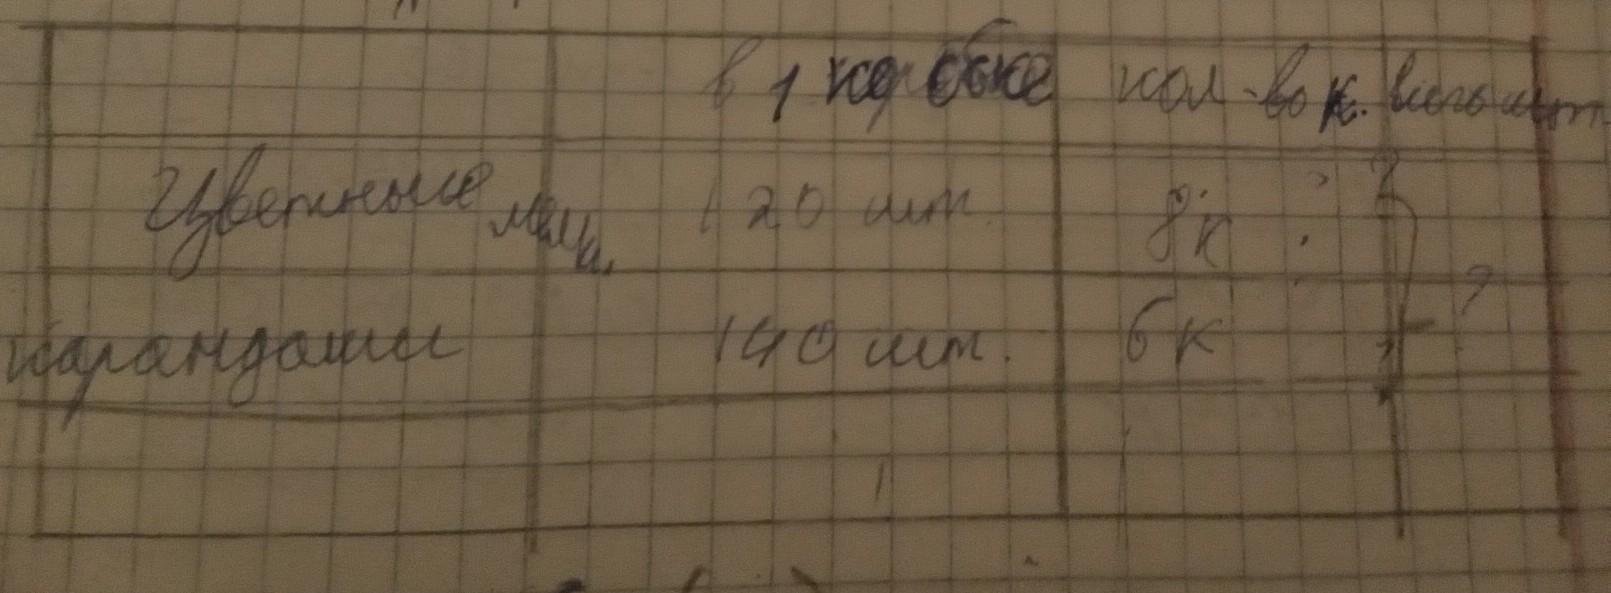 в 1 коробке кол-во к. всего шт.
Цветные мелки 120 шт. 8 к ?
?
карандаши 140 шт. 6 к